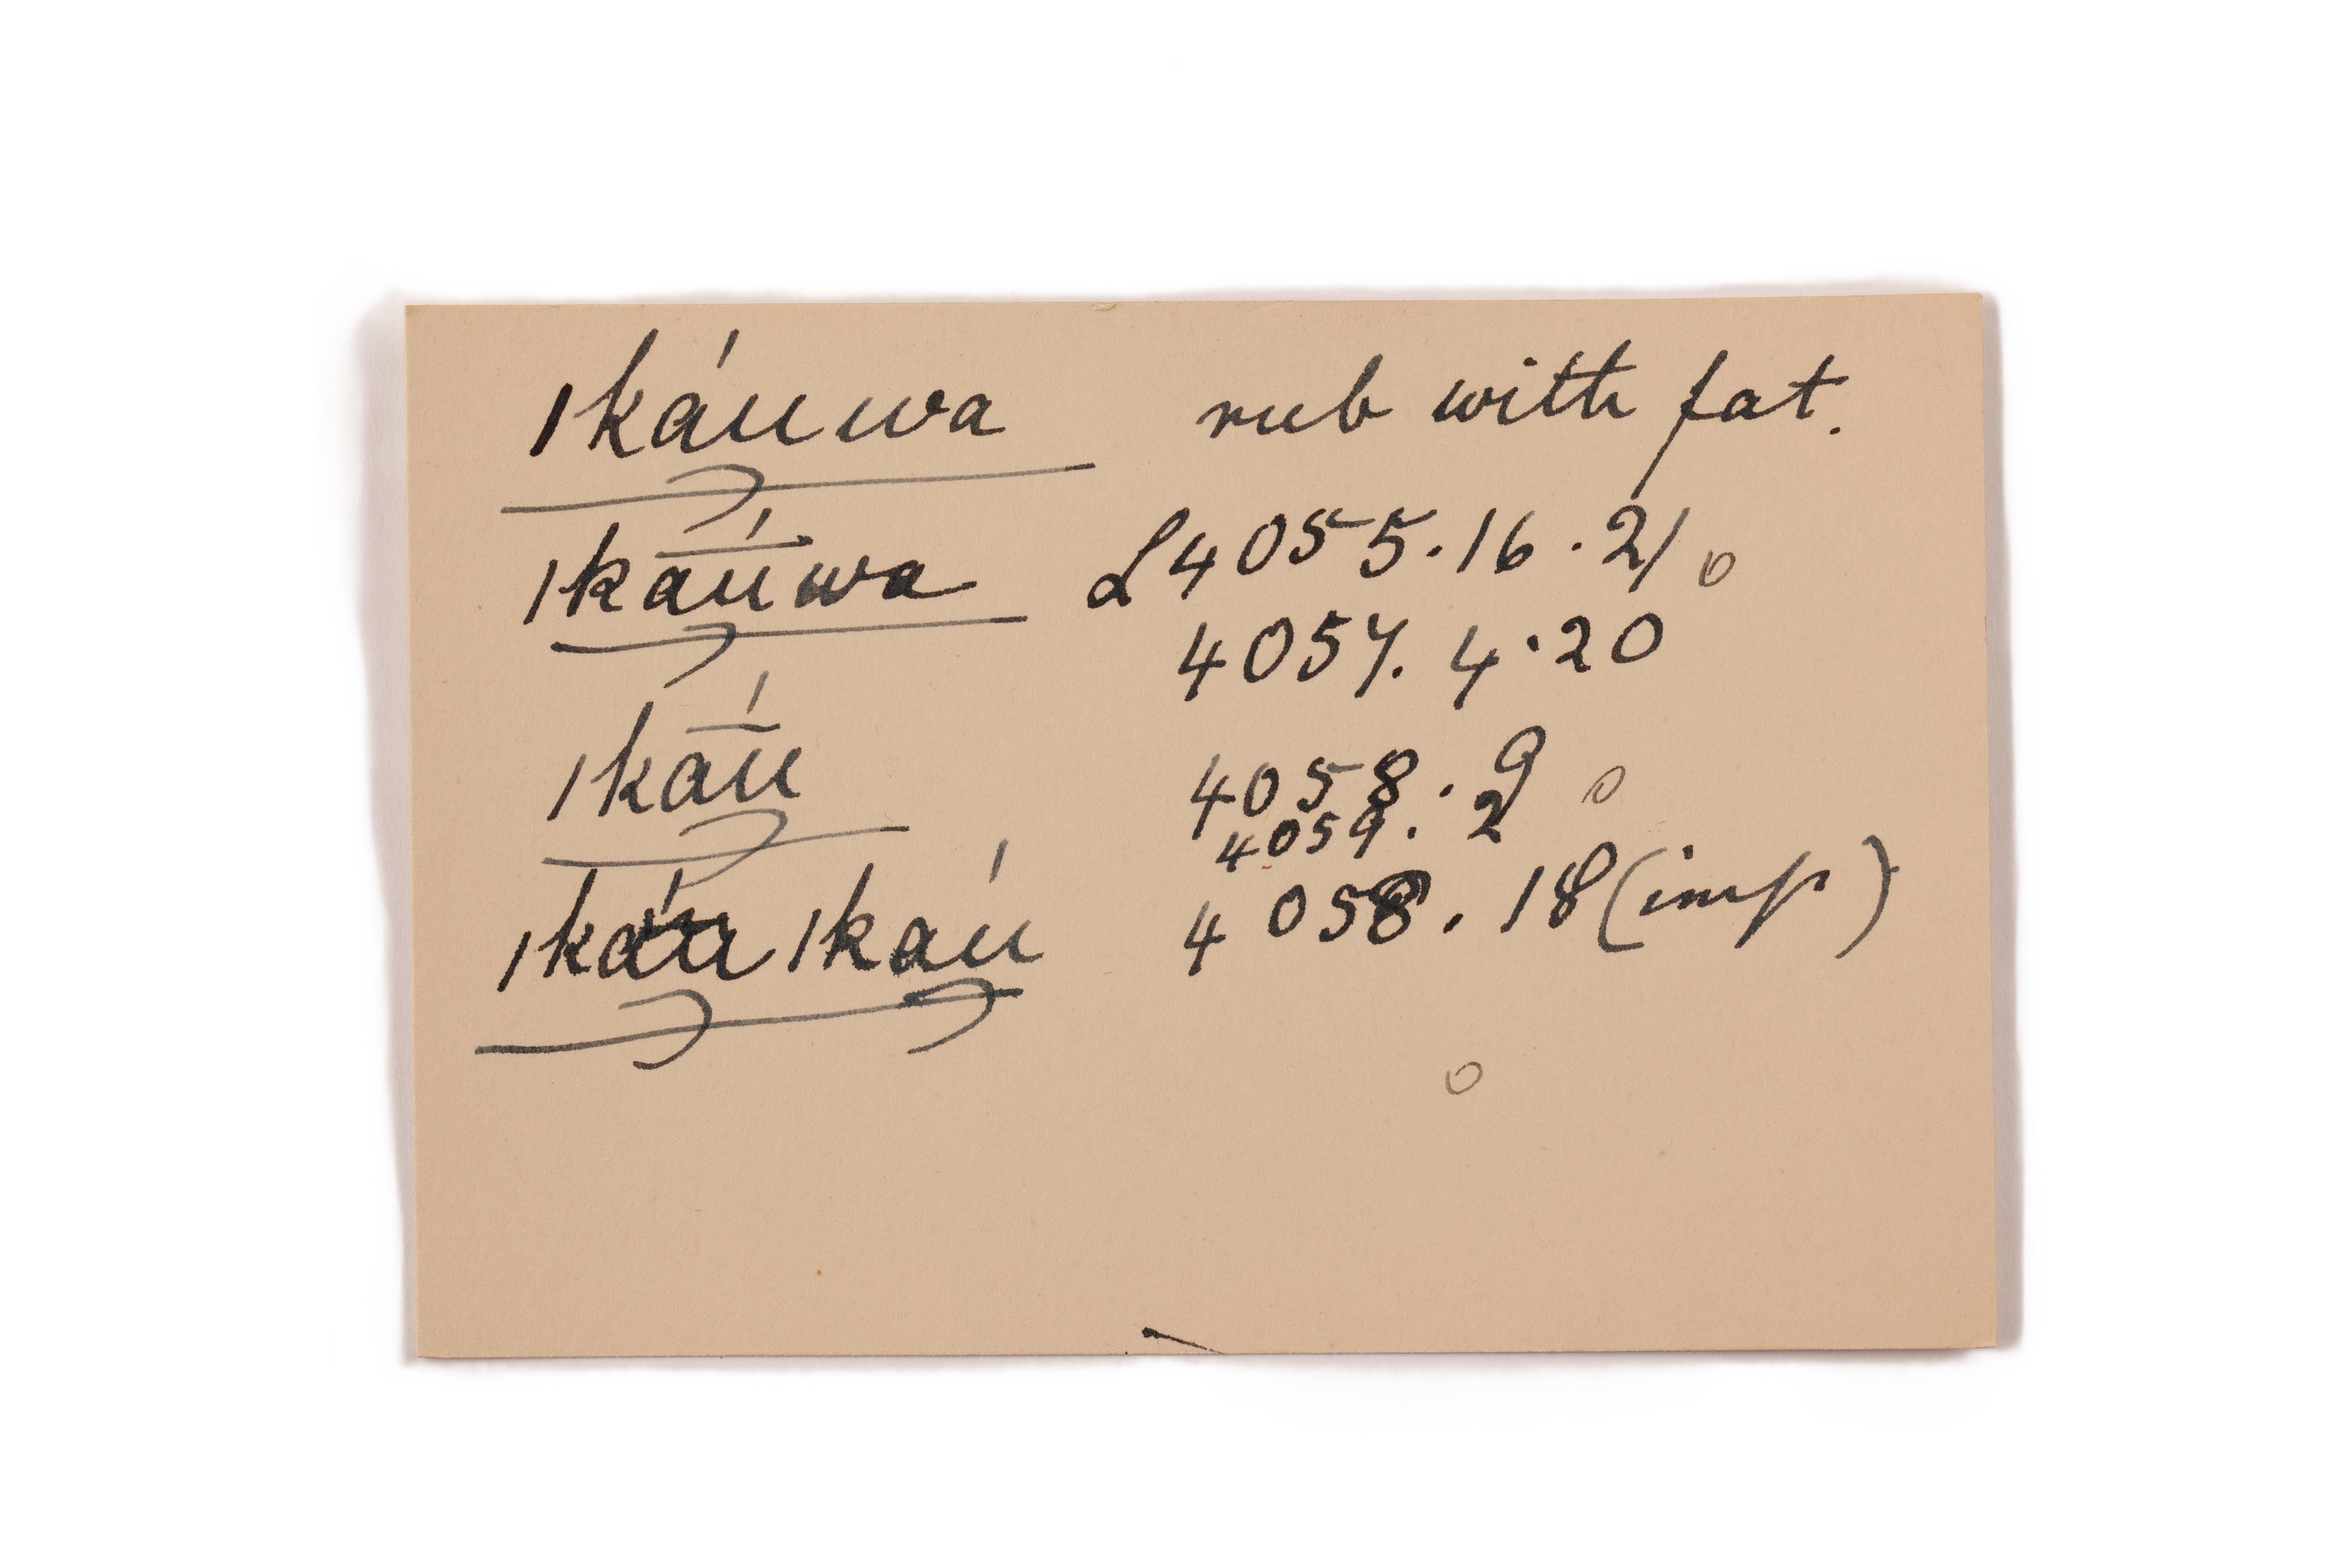 ǀkáu̯wa rub with fat.
ǀkā́u̯wa L 4055.16.21
4057.4.20
ǀkā́u̯ 4058.9
4059.2
ǀkáu̯ ǀkaú 4058.18 (imp)